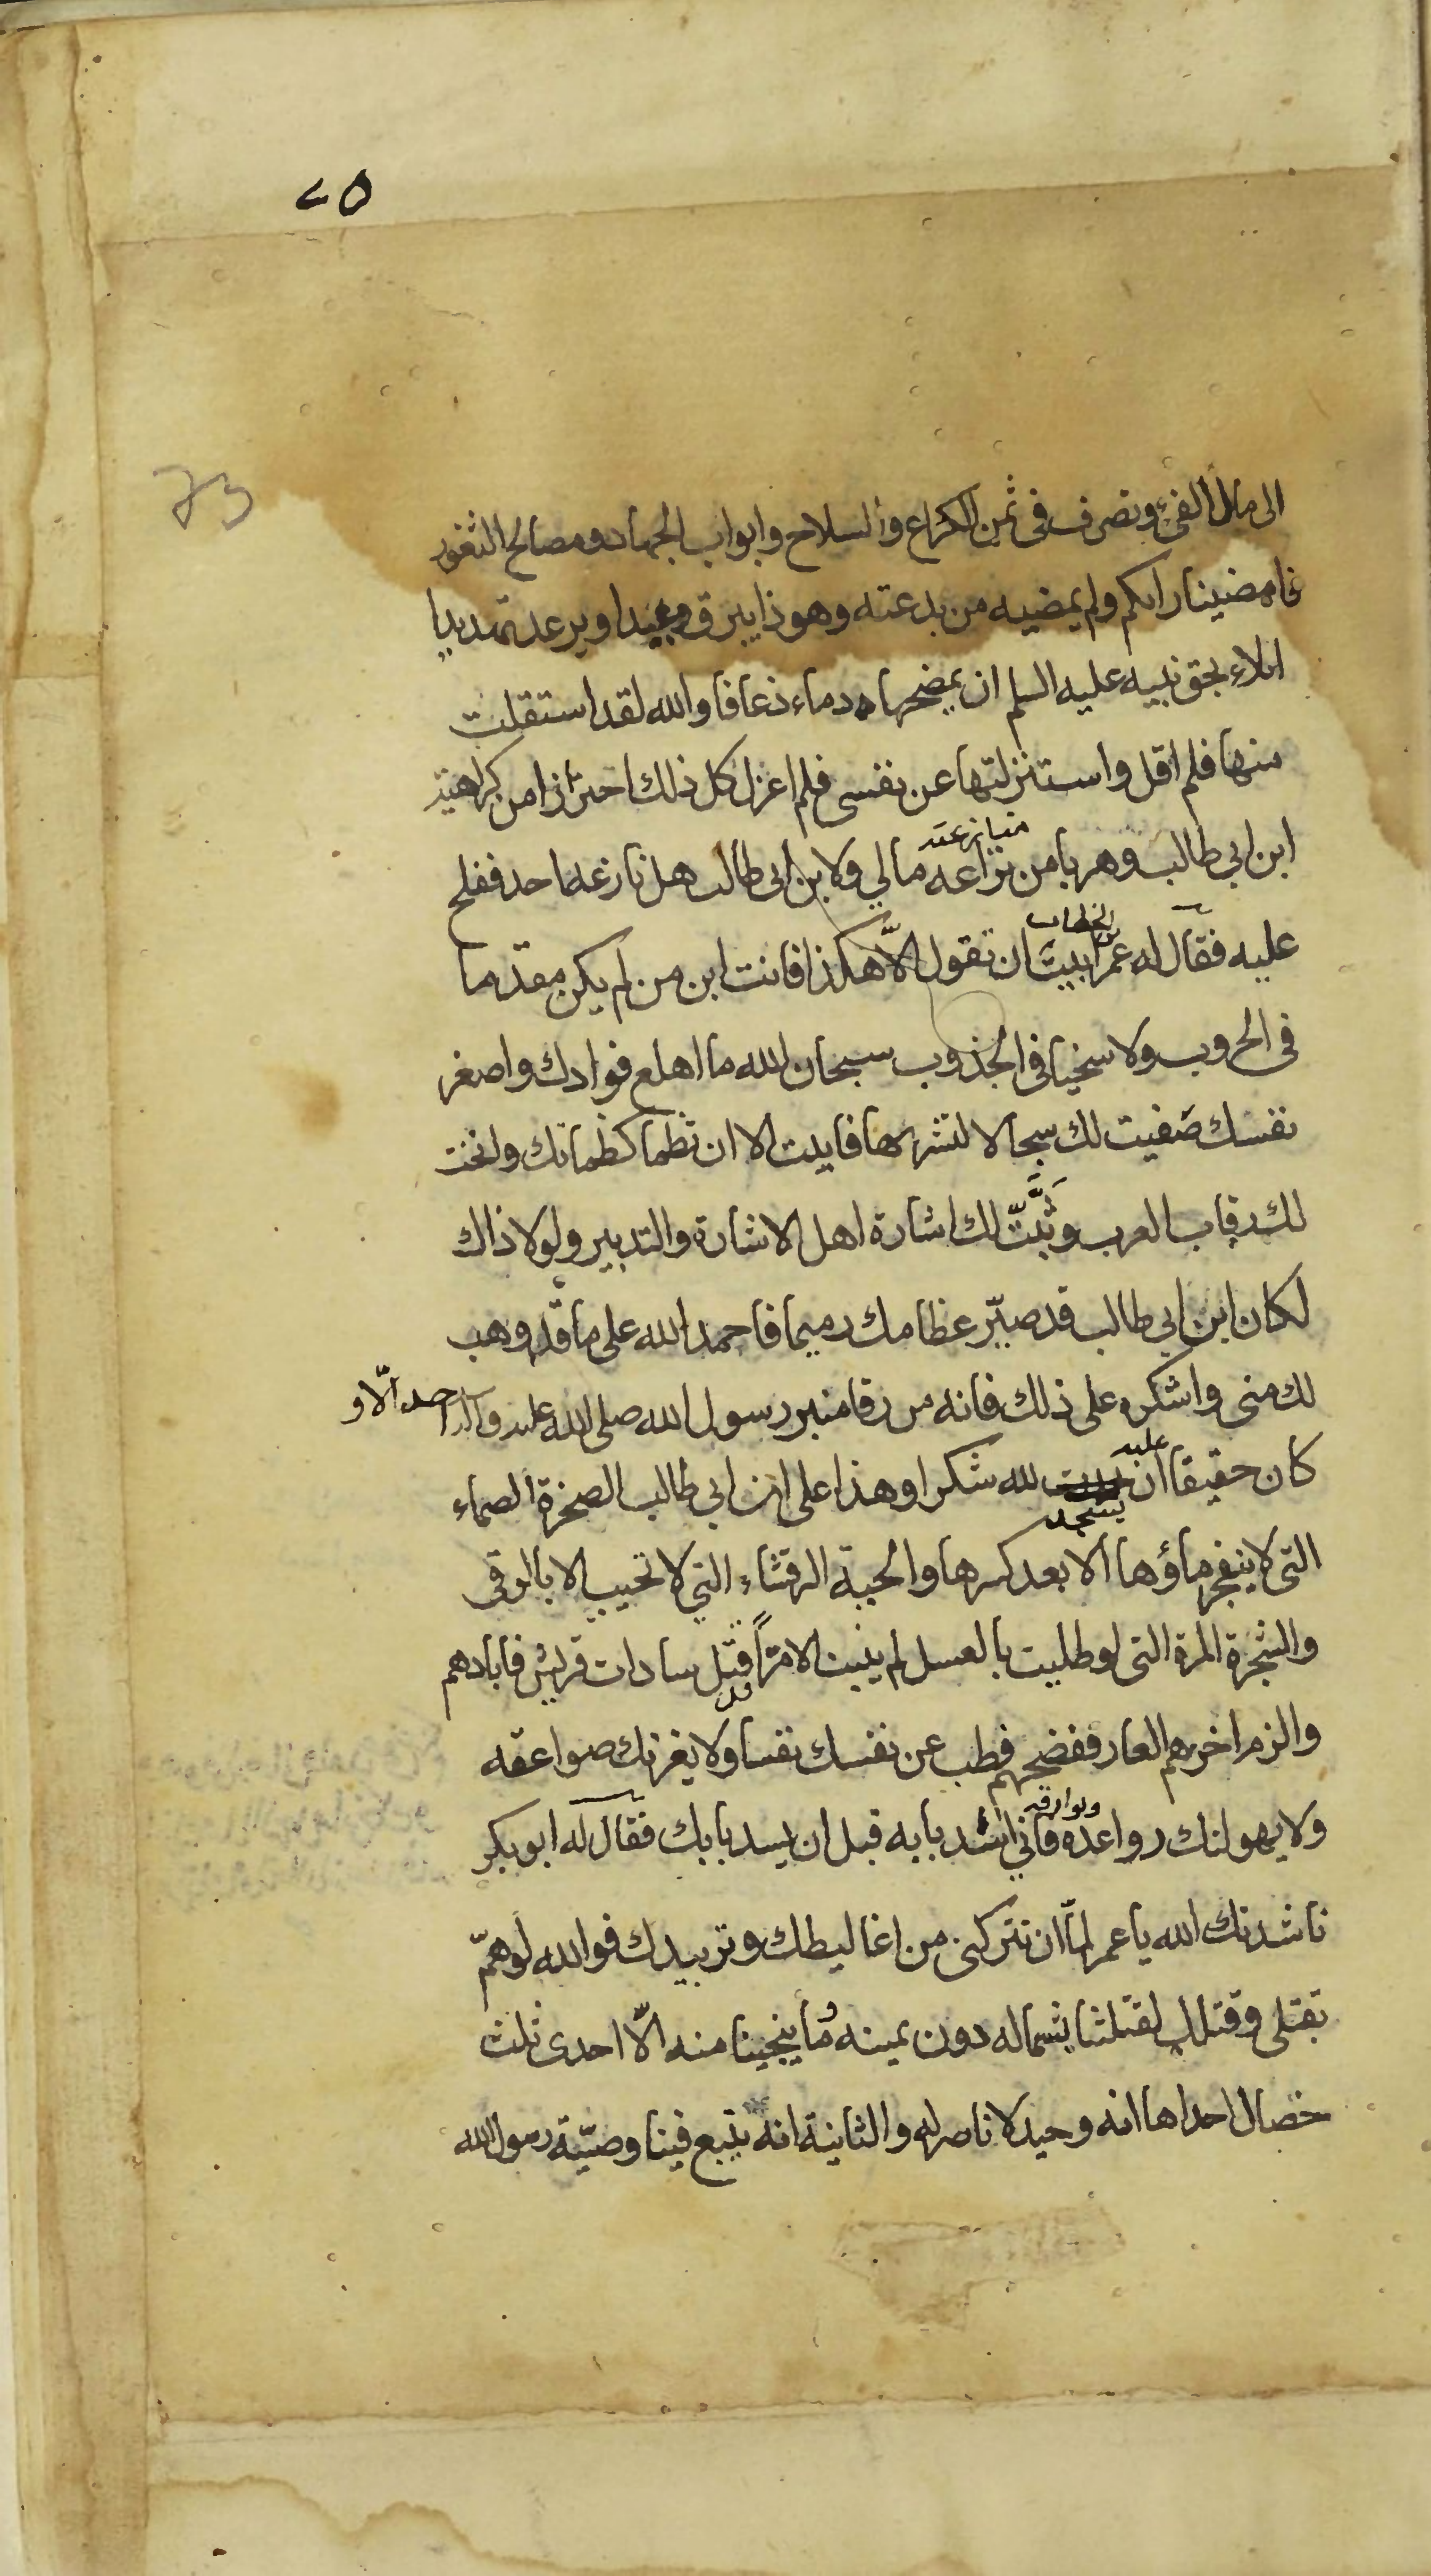 ٢٥
73
الى مال الفئ ونصرف في ثمن الكراع والسلاح وابواب الجهاد ومصالح الثغور
فامضينا رايكم ولم يمضيه من بدعته وهو ذا يبرق وعيدا ويرعد تهديدا
ايلاء بحق نبيه عليه السلم ان يمضحها دماء ذعافا والله لقد استقلت
منها فلم اقل واستنزلتها عن نفسي فلم اعزل كل ذلك احترازا من كراهية
ابن ابي طالب وهربا من نزاعه مالي ولابن ابي طالب هل نازعه احد ففلج
منازعته
عليه فقال له عمر ابيت ان تقول الّا هكذا فانت ابن من لم يكن مقدما
بن الخطاب
في الحروب ولا سخيا في الجذوب سبحان الله ما اهلع فوادك واصغر
نفسك صَفيت لك سجالا لتشربها فابيت الا ان تظما كظمائك وانخت
لك رقاب العرب وثبّتّ لك اشارة اهل الاشارة والتدبير ولولا ذاك
لكان ابن ابي طالب قد صيّر عظامك رميما فاحمد الله على ما قد وهب
لك منى واشكره على ذلك فانه من رقا منبر رسول الله صلى الله عليه وآله احد الّا و
كان حقيقا ان لله شكرا وهذا على ابن ابي طالب الصخرة الصماء
عليه
يسجد
التى لا ينفجر ماؤها الا بعد كسرها والحية الرقشاء التي لا تجيب الا بالرقى
والشجرة المرة التى لو طليت بالعسل لم ينبت الا مرّاً قتل سادات قريش فابادهم
والزم اخرهم العار ففضحهم فطب عن نفسك نفسا ولا يغرنك صواعقه
ولا يهولنك رواعده فاني اسد بابه قبل ان يسد بابك فقال له ابو بكر
وبوارقه
ناشدتك الله يا عمر لمّا ان تتركنى من اغاليطك وتربيدك فوالله لو همّ
بقتلى وقتلك لقتلنا بشماله دون يمينه وما ينجينا منه الّا احدى ثلث
خصال احداها انه وحيد لا ناصر له والثانية انه يتبع فينا وصيّة رسول الله